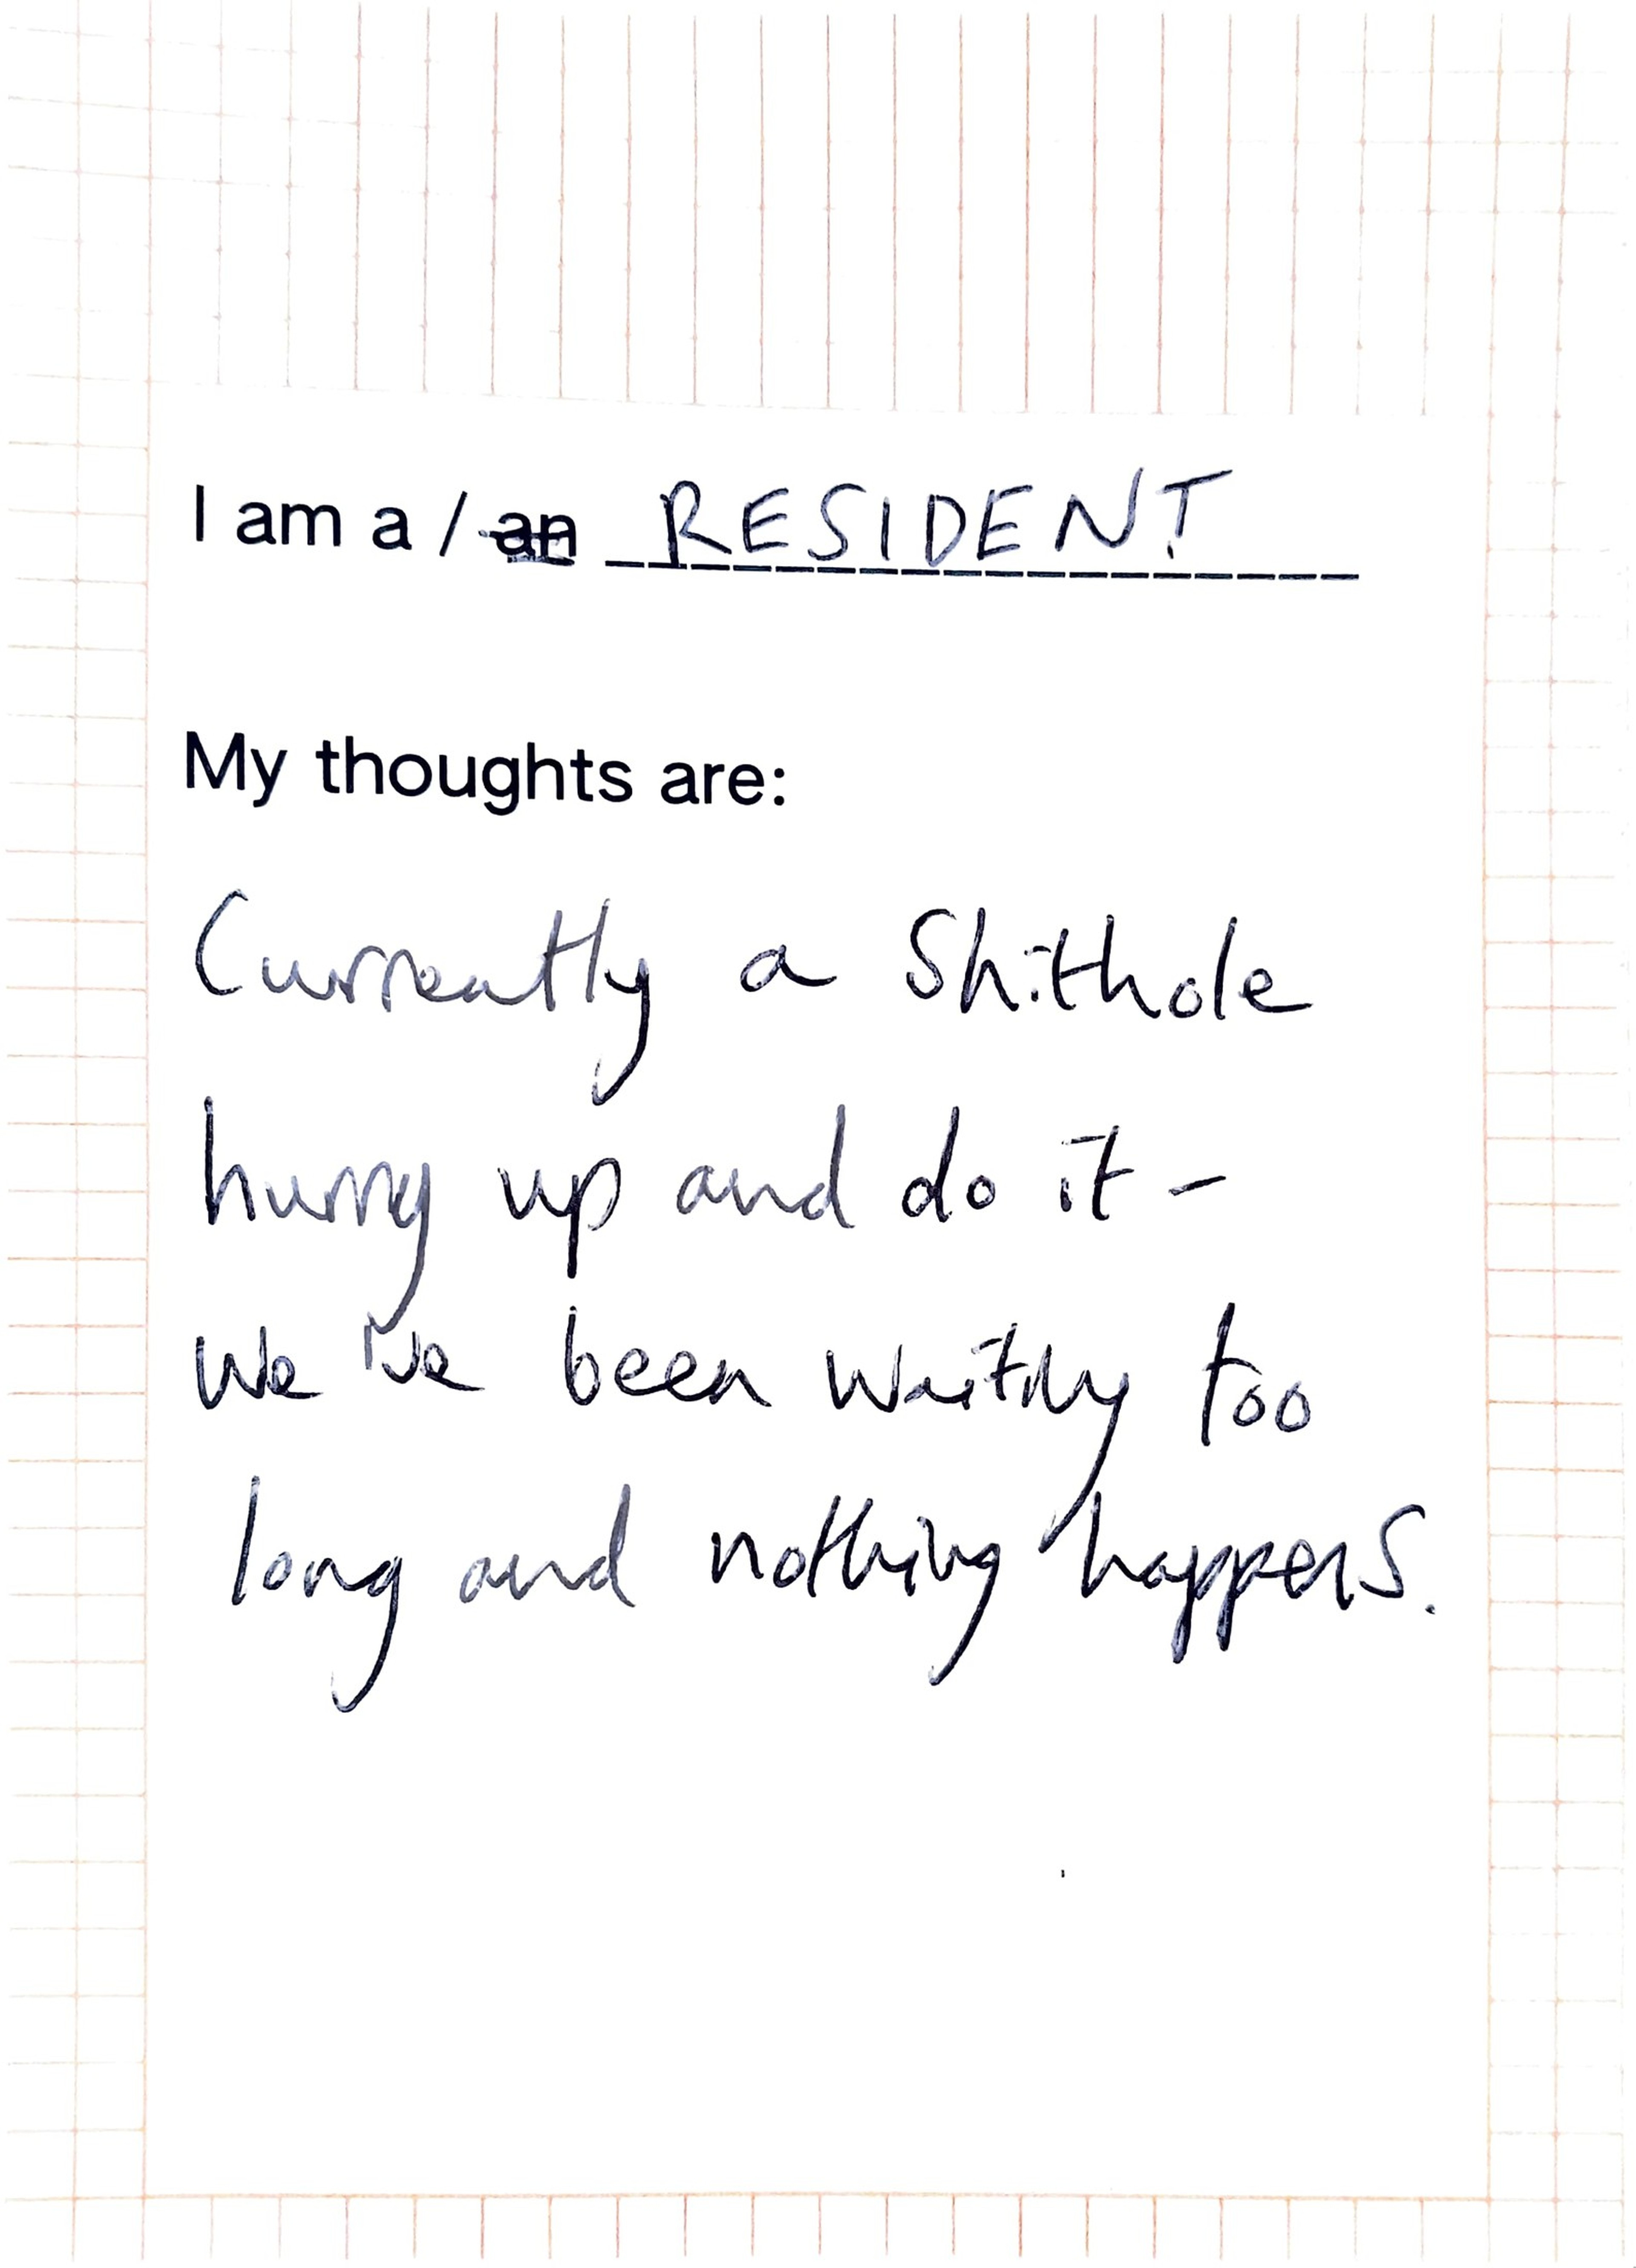 I am a / an RESIDENT
My thoughts are:
Currently a Shithole
hurry up and do it -
We've been waiting too
long and nothing happens.